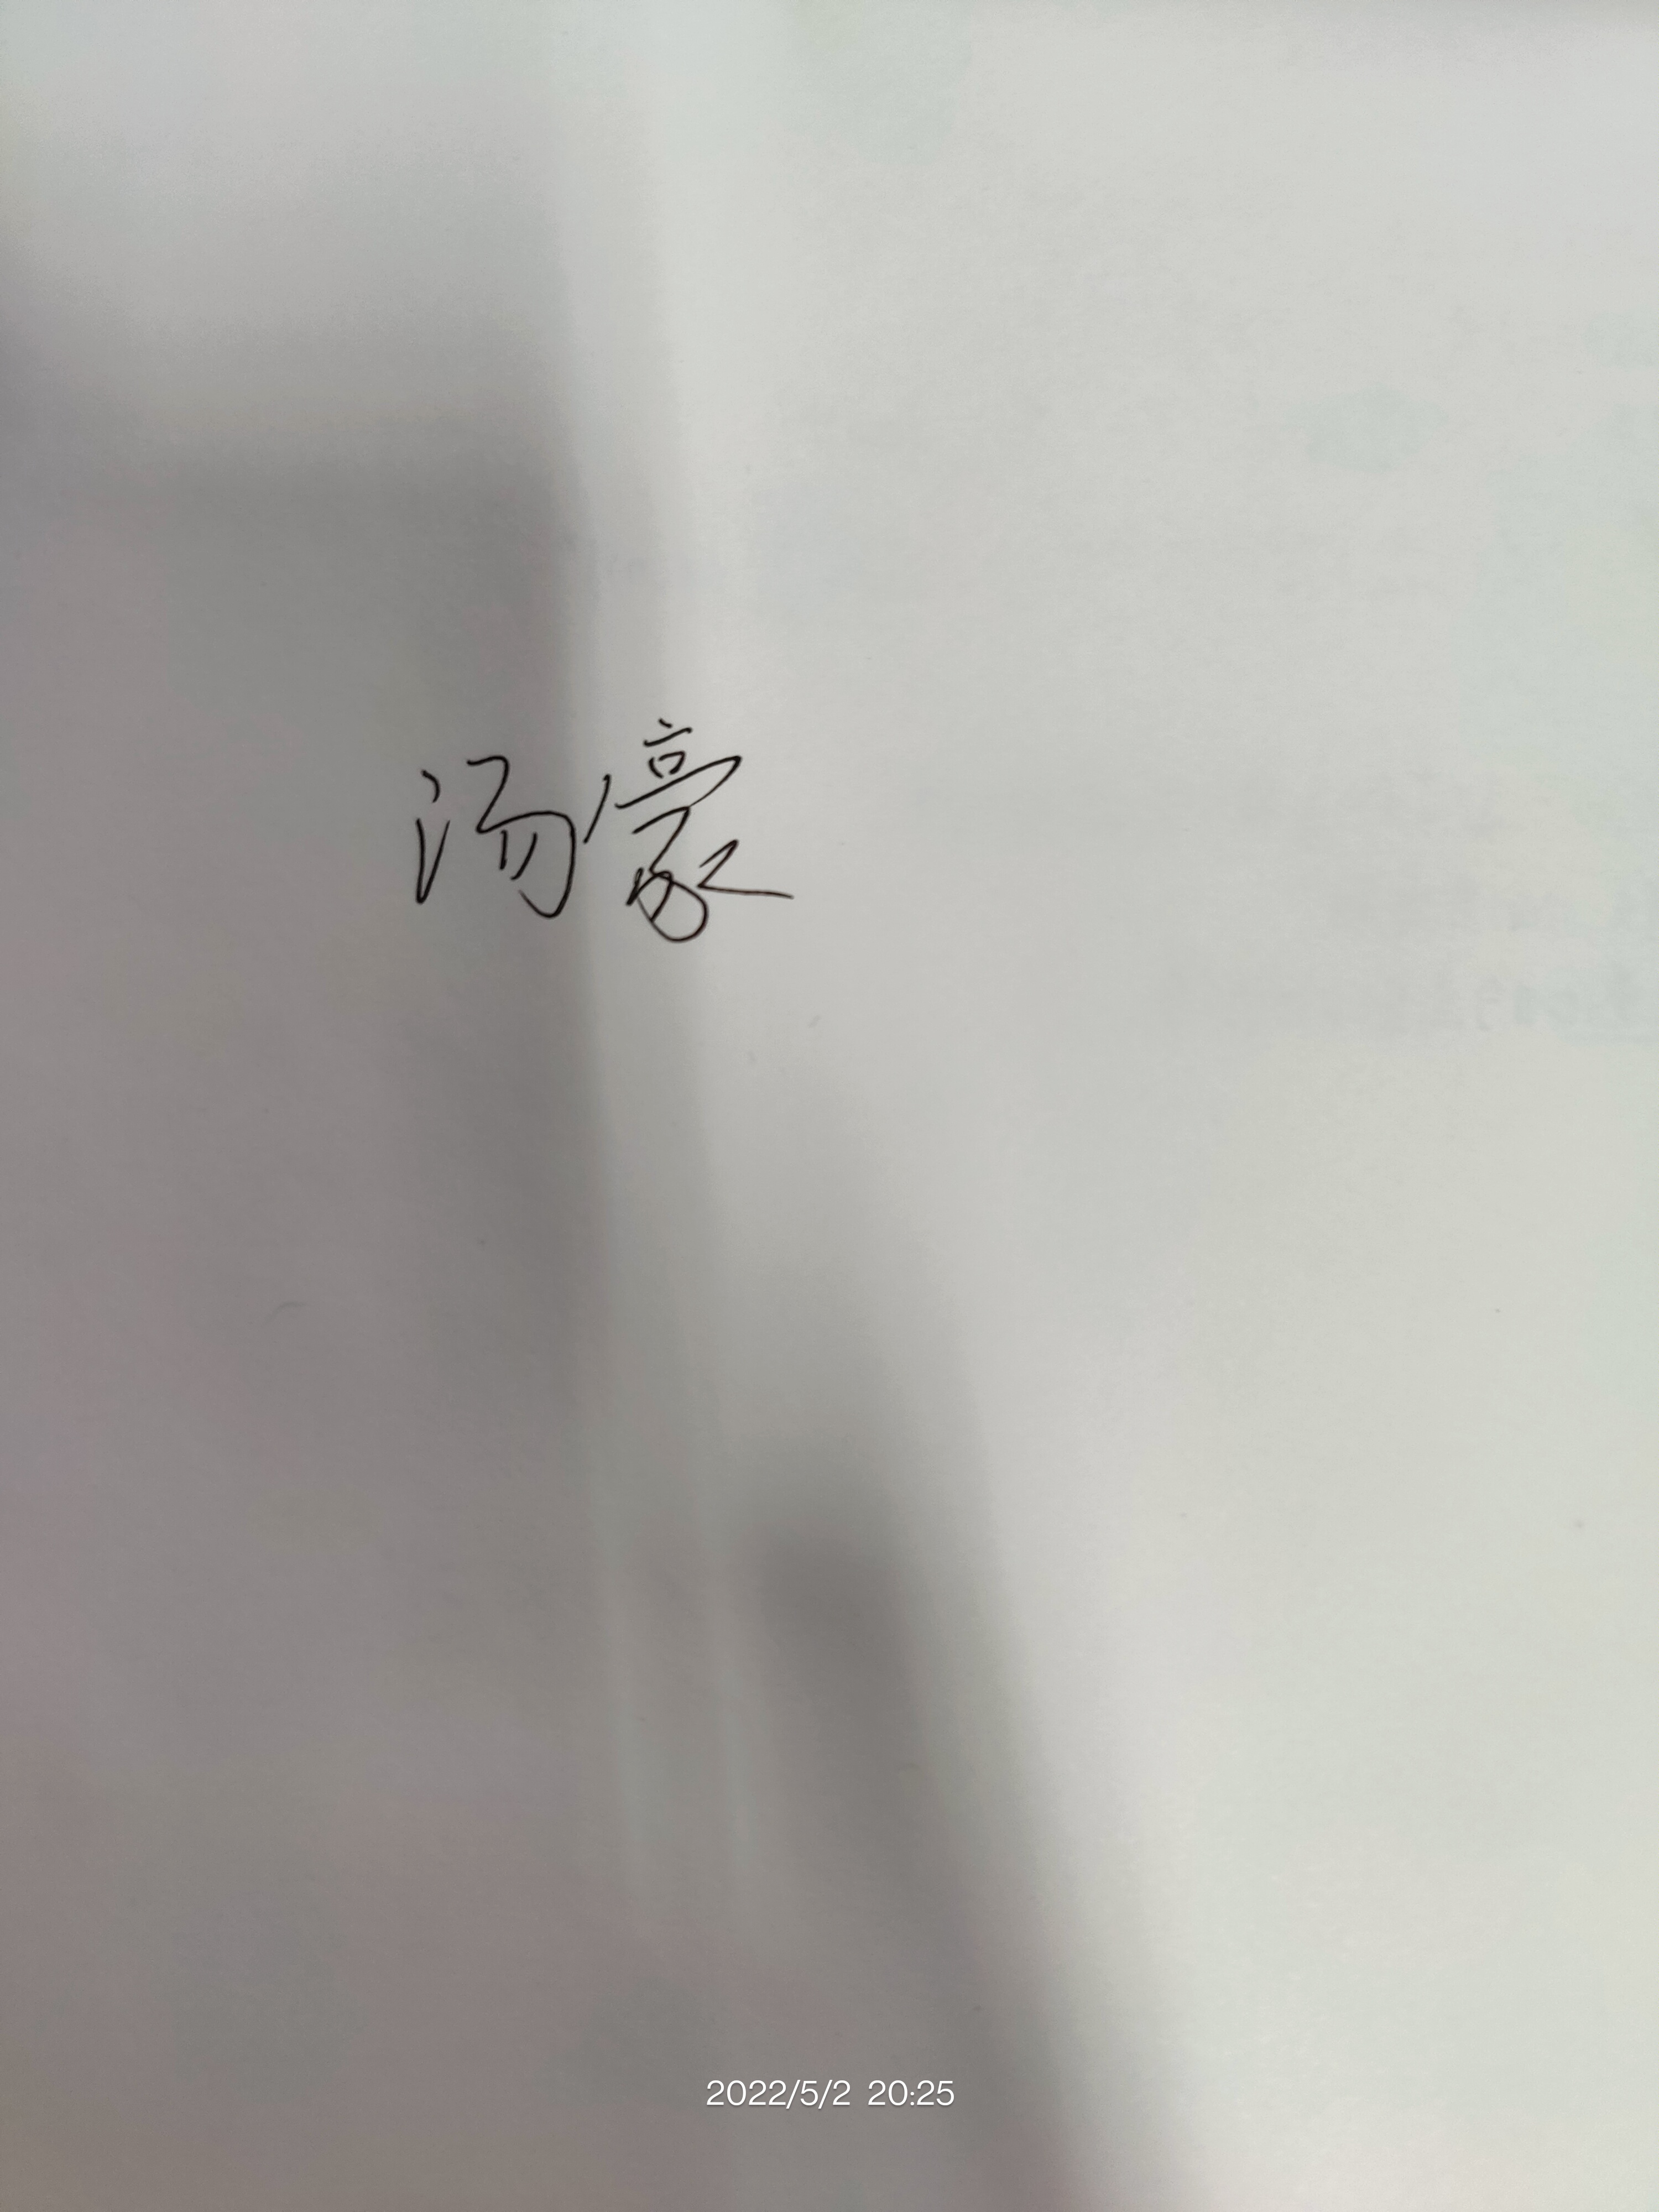 汤豪
2022/5/2 20:25